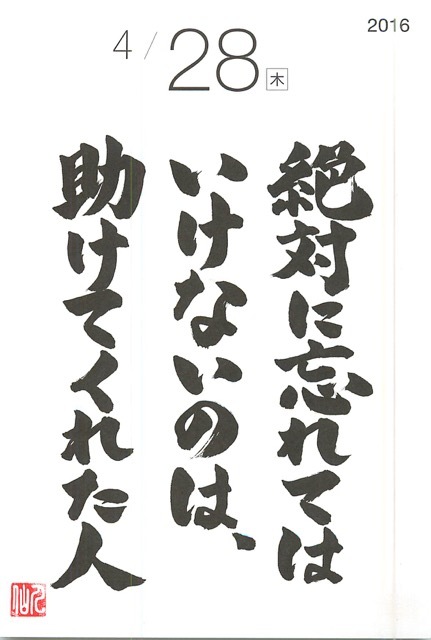 2016
4/28 木
絶対に忘れては
いけないのは、
助けてくれた人